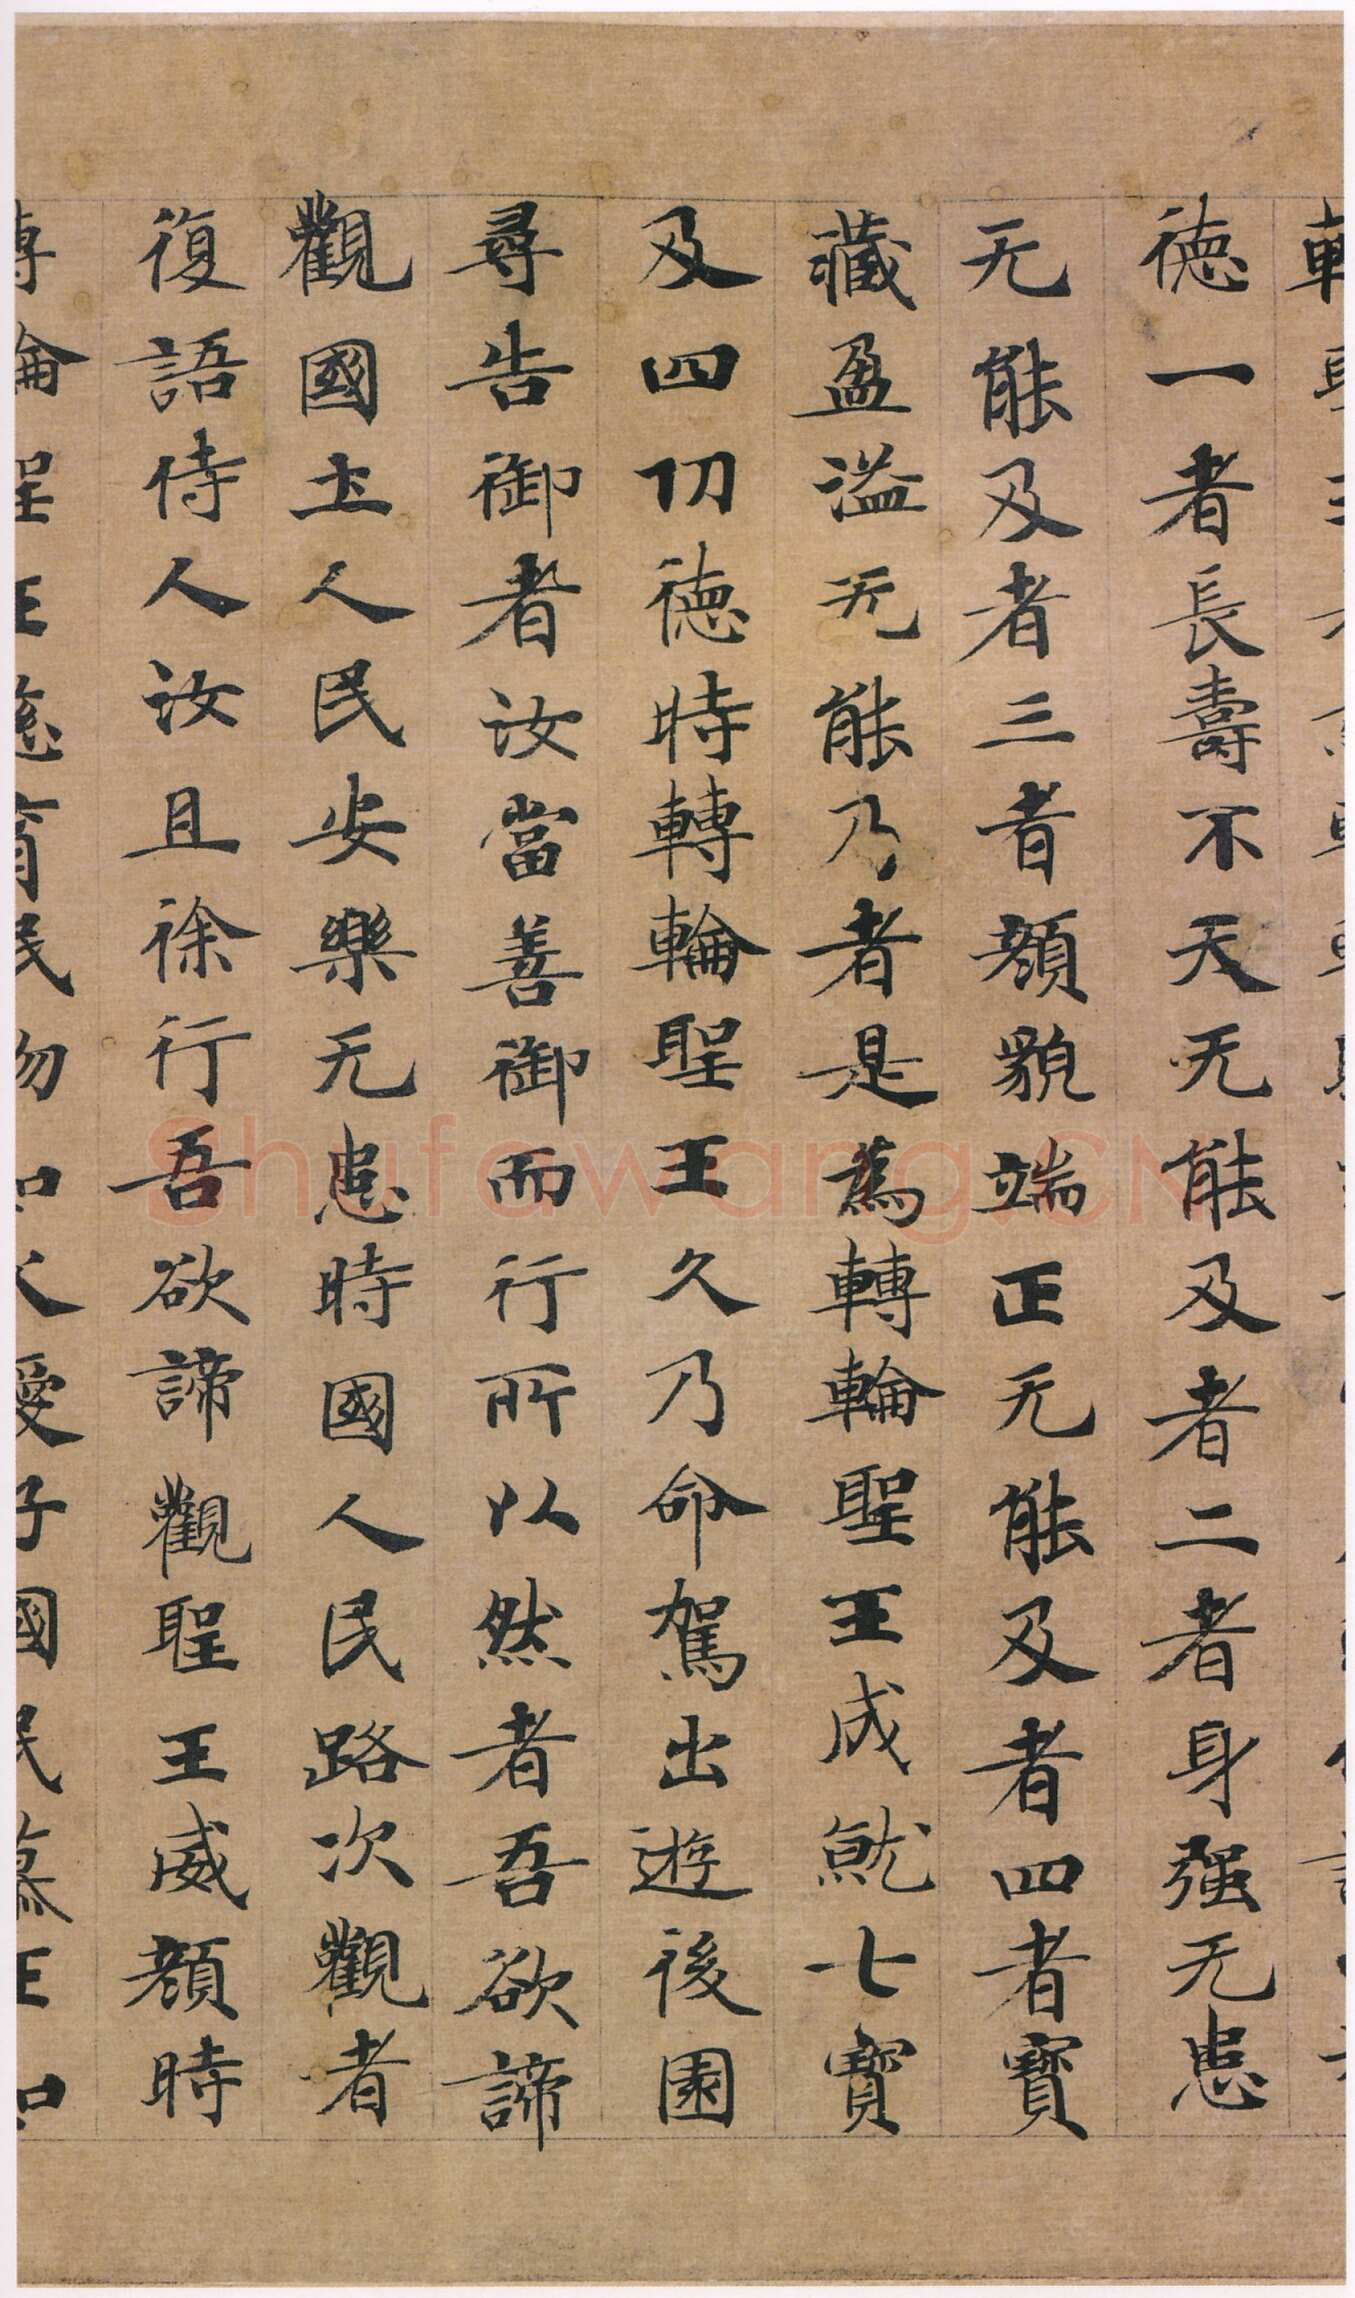 徳一者長壽不天无能及者二者身强无患
无能及者三者顏貌端正无能及者四者寶
藏盈溢无能乃者是為轉輪聖王成就七寶
及四功徳時轉輪聖王久乃命駕出遊後園
尋告御者汝當善御而行所以然者吾欲諦
觀國土人民安樂无患時國人民路次觀者
復語侍人汝且徐行吾欲諦觀聖王威顏時
轉輪聖王慈育民物如父愛子國民慕王如
Shufawang.CN